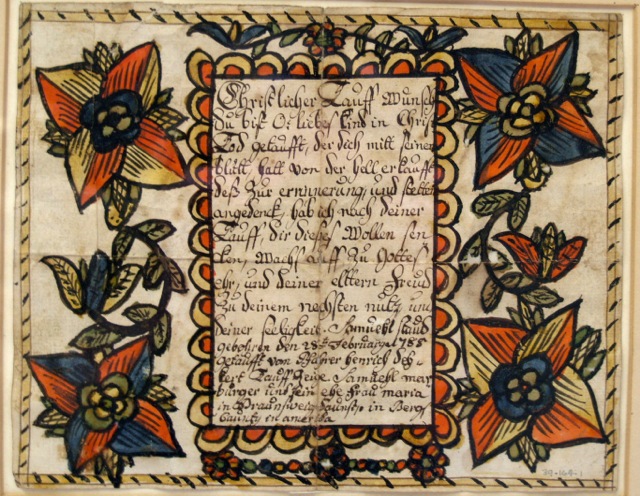 Christlicher Tauff Wunsch
Du bist O: liebes Kind in Chris
Tod getaufft, der dich mitt seinem
blutt, hatt von der hell erkaufft
deß Zur erinnerung, und stetten
angedenck, hab ich nach deiner
Tauff, dir dießes Wollen sen
ken, Wachs auff Zu Gottes
ehr, und deiner eltern Freud
Zu deinem nechsten nutz, und
deiner seeligkeit. Samuehl staud
gebohren den 28ten February 1788
getaufft von Pfarrer henrich
kert Tauff Zeuge Samuehl mar
burger und sein ehe Frau maria
in Braunsweig Taunship in Berg
Caunty in amerika
39-164-1